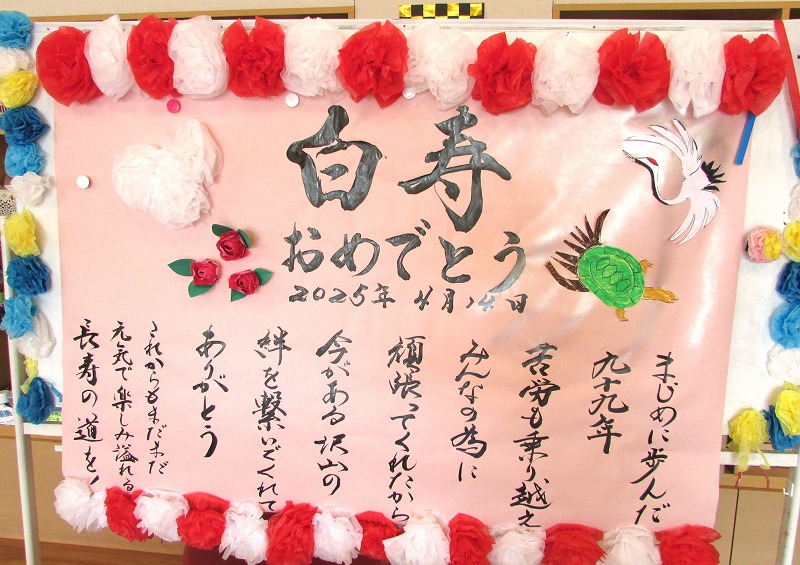 白寿
おめでとう
2025年 4月14日
まじめに歩んだ
九十九年
苦労も乗り越え
みんなの為に
頑張ってくれたから
今がある沢山の
絆を繋いでくれて
ありがとう
これからもまだまだ
元気で楽しみ溢れる
長寿の道を！